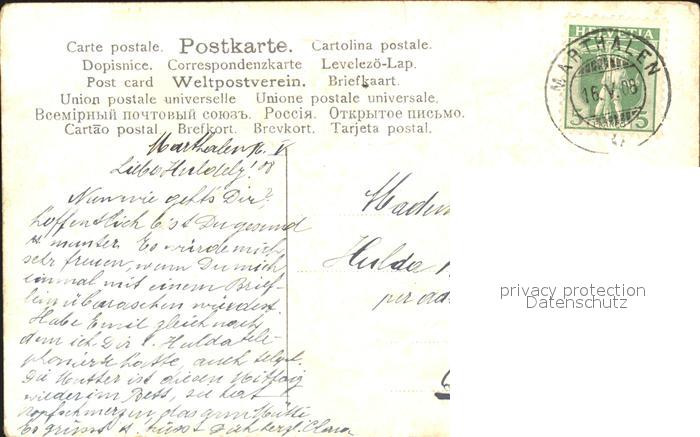 Carte postale. Postkarte. Cartolina postale.
Dopisnice. Correspondenzkarte Levelező-Lap.
Post card Weltpostverein. Briefkaart.
Union postale universelle Unione postale universale.
Всемірный почтовый союзъ. Россія. Открытое письмо.
Cartão postal Brefkort. Brevkort. Tarjeta postal.
HELVETIA
MARTHALEN
16. V. 08
5 5
Marthalen V
Liebe 08
Nun wie geht's Dir?
hoffentlich bist Du gesund
u. munter. Es würde mich
sehr freuen, wenn Du mich
einmal mit einem Brief-
lein überraschen würdest.
Habe Emil gleich nach
dem ich Dir l. Hulda tele-
phonierte hatte, auch
Die Mutter ist diesen Mittag
wieder im Bett, sie hat
Kopfschmerzen, das
Es grüsst u. küsst Dich herzl. Clara
Hulda
per
privacy protection
Datenschutz